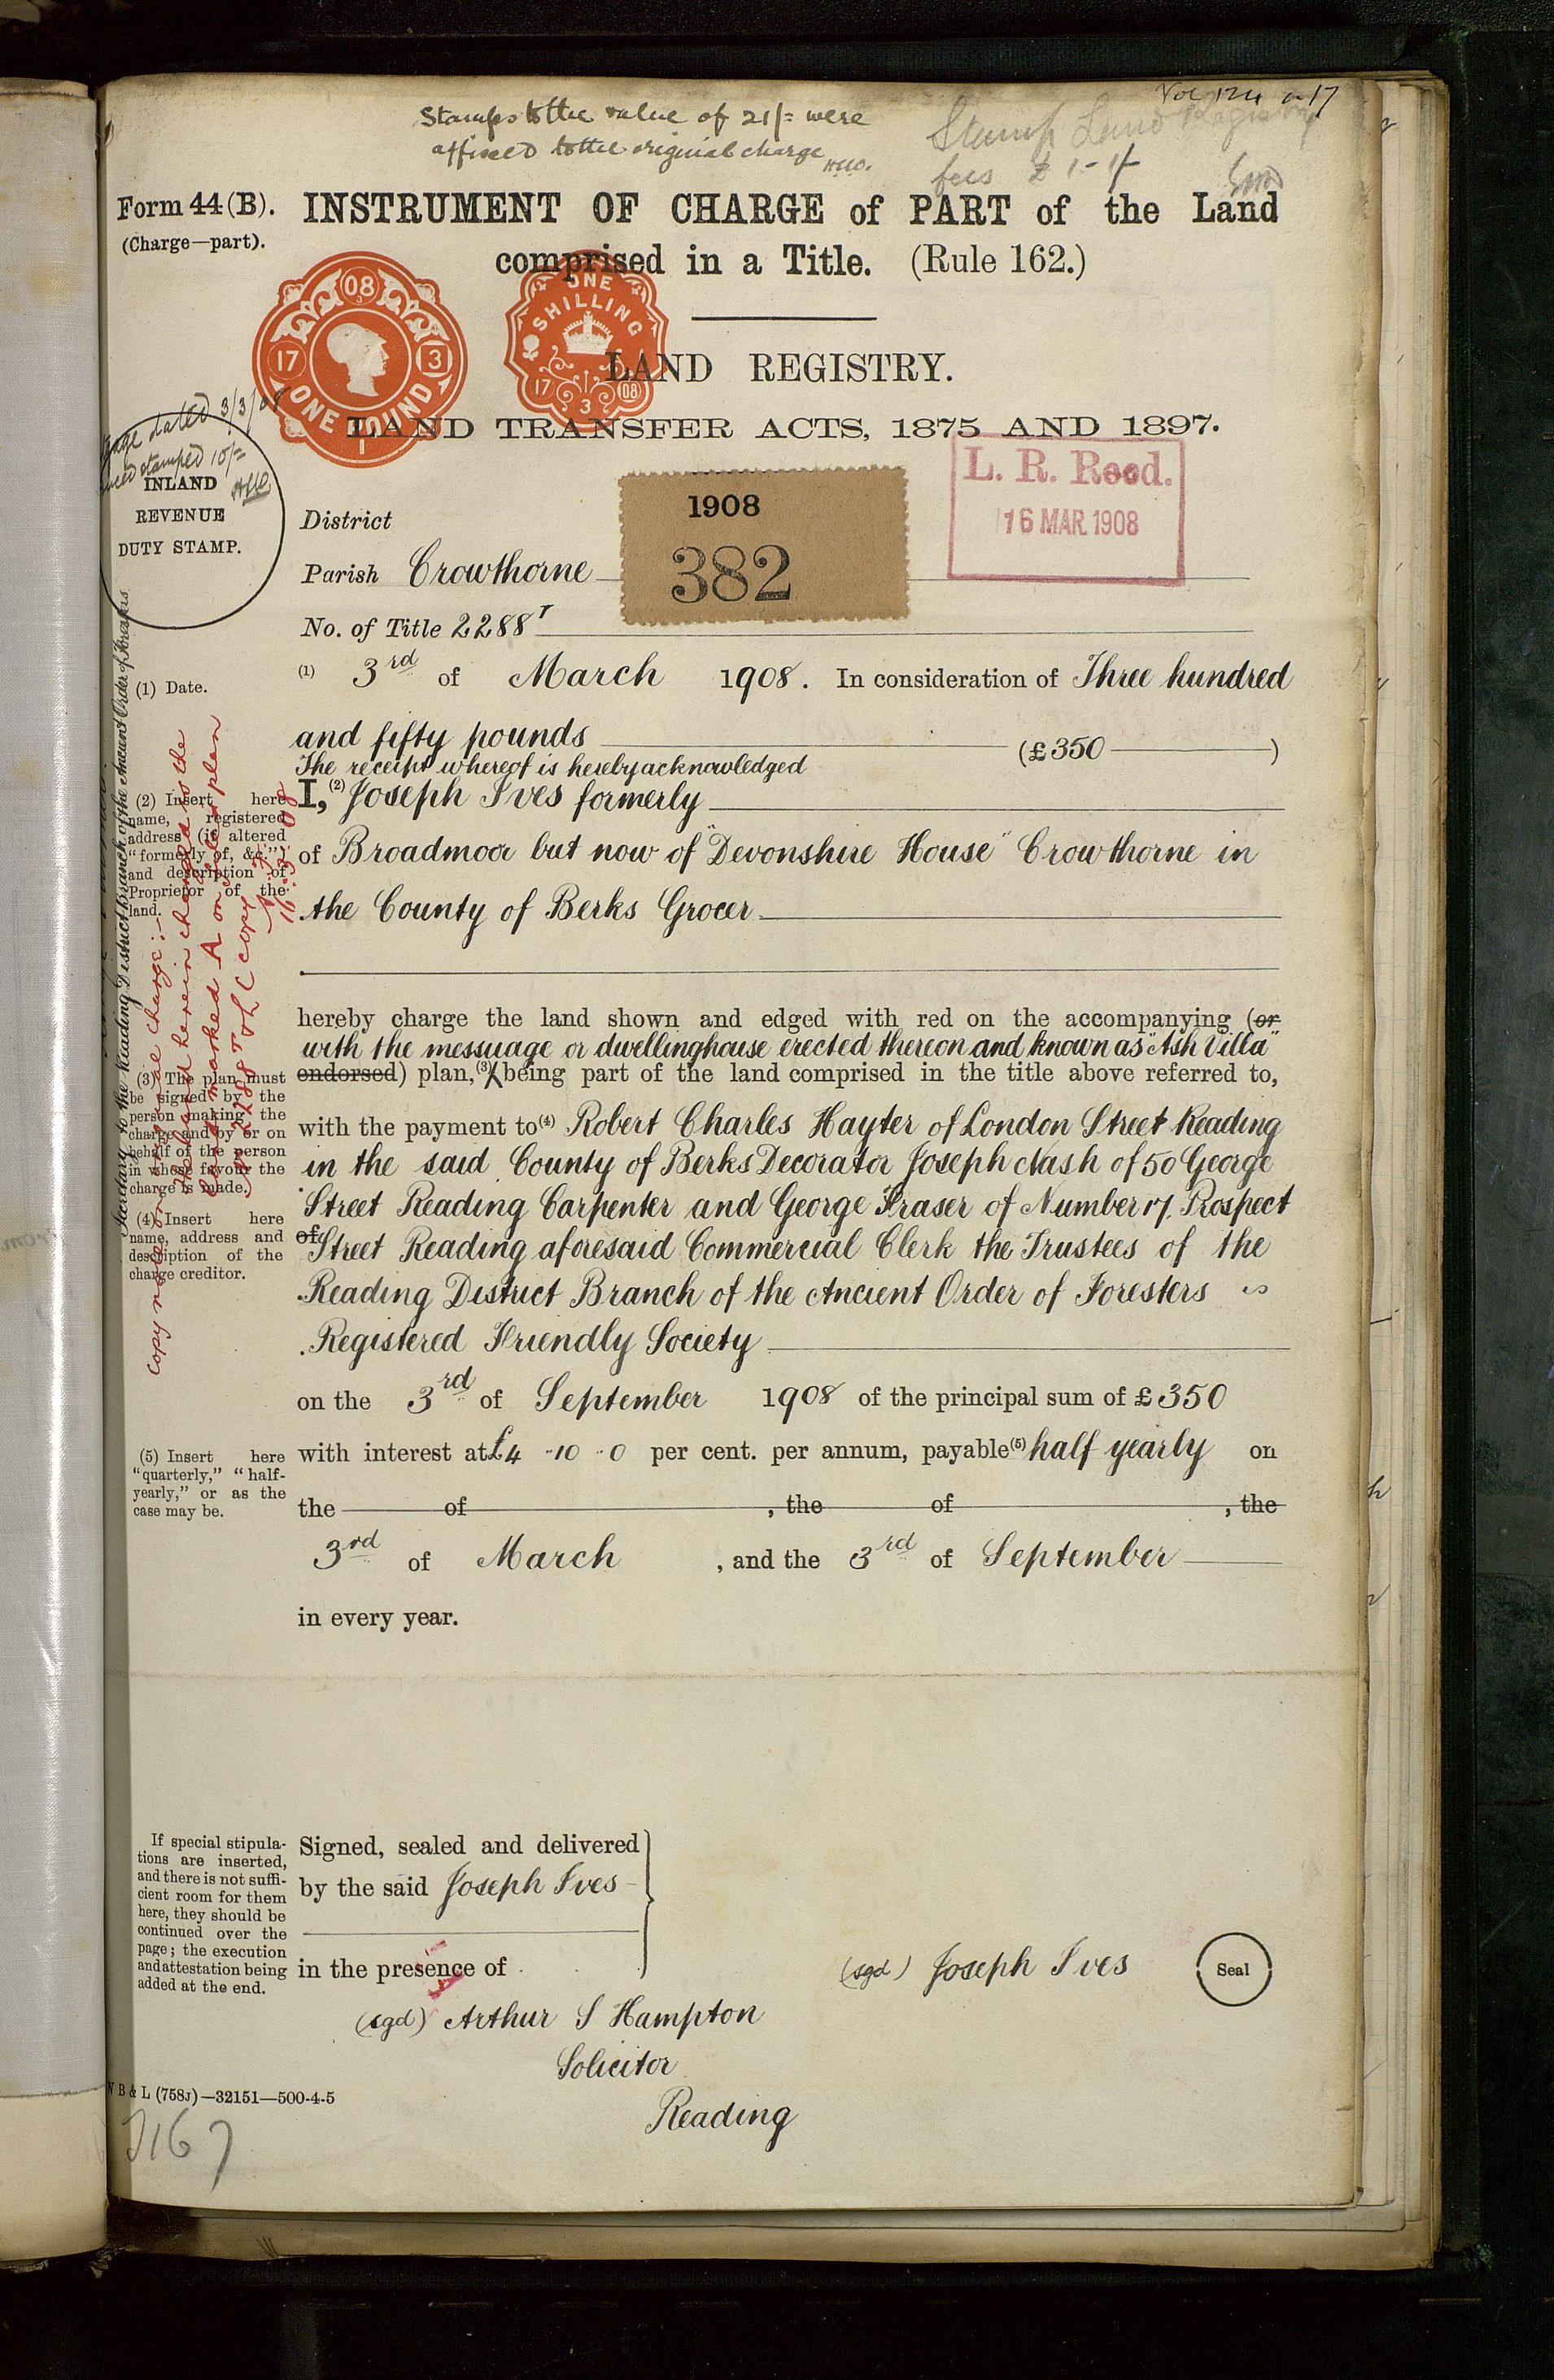 Vol 124 17
Stamps to the value of 21/= were
affixed to the original charge
Stamp Land Registry
fees £1-1/-
Form 44 (B). INSTRUMENT OF CHARGE of PART of the Land
(Charge—part).
comprised in a Title. (Rule 162.)
08
17 3
ONE POUND
1
ONE
SHILLING
17 3 08
LAND REGISTRY.
LAND TRANSFER ACTS, 1875 AND 1897.
dated 3/3/08
stamped 10/=
INLAND
REVENUE
DUTY STAMP.
1908
382
L. R. Recd.
16 MAR. 1908
District
Parish Crowthorne
No. of Title 2288T
(1) Date.
(1) 3rd of March 1908. In consideration of Three hundred
and fifty pounds (£350)
The receipt whereof is hereby acknowledged
(2) Insert here
name, registered
address (if altered
"formerly of, &c.")
and description of
Proprietor of the
land.
I, (2) Joseph Ives formerly
of Broadmoor but now of "Devonshire House" Crowthorne in
the County of Berks Grocer
hereby charge the land shown and edged with red on the accompanying (or
with the messuage or dwellinghouse erected thereon and known as "Ash Villa"
endorsed) plan, (3) being part of the land comprised in the title above referred to,
(3) The plan must
be signed by the
person making the
charge and by or on
behalf of the person
in whose favour the
charge is made.
with the payment to (4) Robert Charles Hayter of London Street Reading
in the said County of Berks Decorator Joseph Nash of 50 George
Street Reading Carpenter and George Fraser of Number 17. Prospect
of Street Reading aforesaid Commercial Clerk the Trustees of the
Reading District Branch of the Ancient Order of Foresters
Registered Friendly Society
(4) Insert here
name, address and
description of the
charge creditor.
on the 3rd of September 1908 of the principal sum of £350
with interest at £4 -10 -0 per cent. per annum, payable (5) half yearly on
the of , the of , the
3rd of March , and the 3rd of September
in every year.
(5) Insert here
"quarterly," "half-
yearly," or as the
case may be.
Secretary to the Reading District Branch of the Ancient Order of Foresters
Copy charge:-
the land herein charged is the
marked A on plan
2288T copy
16.3.08
If special stipula-
tions are inserted,
and there is not suffi-
cient room for them
here, they should be
continued over the
page; the execution
and attestation being
added at the end.
Signed, sealed and delivered
by the said Joseph Ives
in the presence of
(sgd) Joseph Ives Seal
(sgd) Arthur S Hampton
Solicitor
Reading
W B & L (758J)—32151—500-4-5